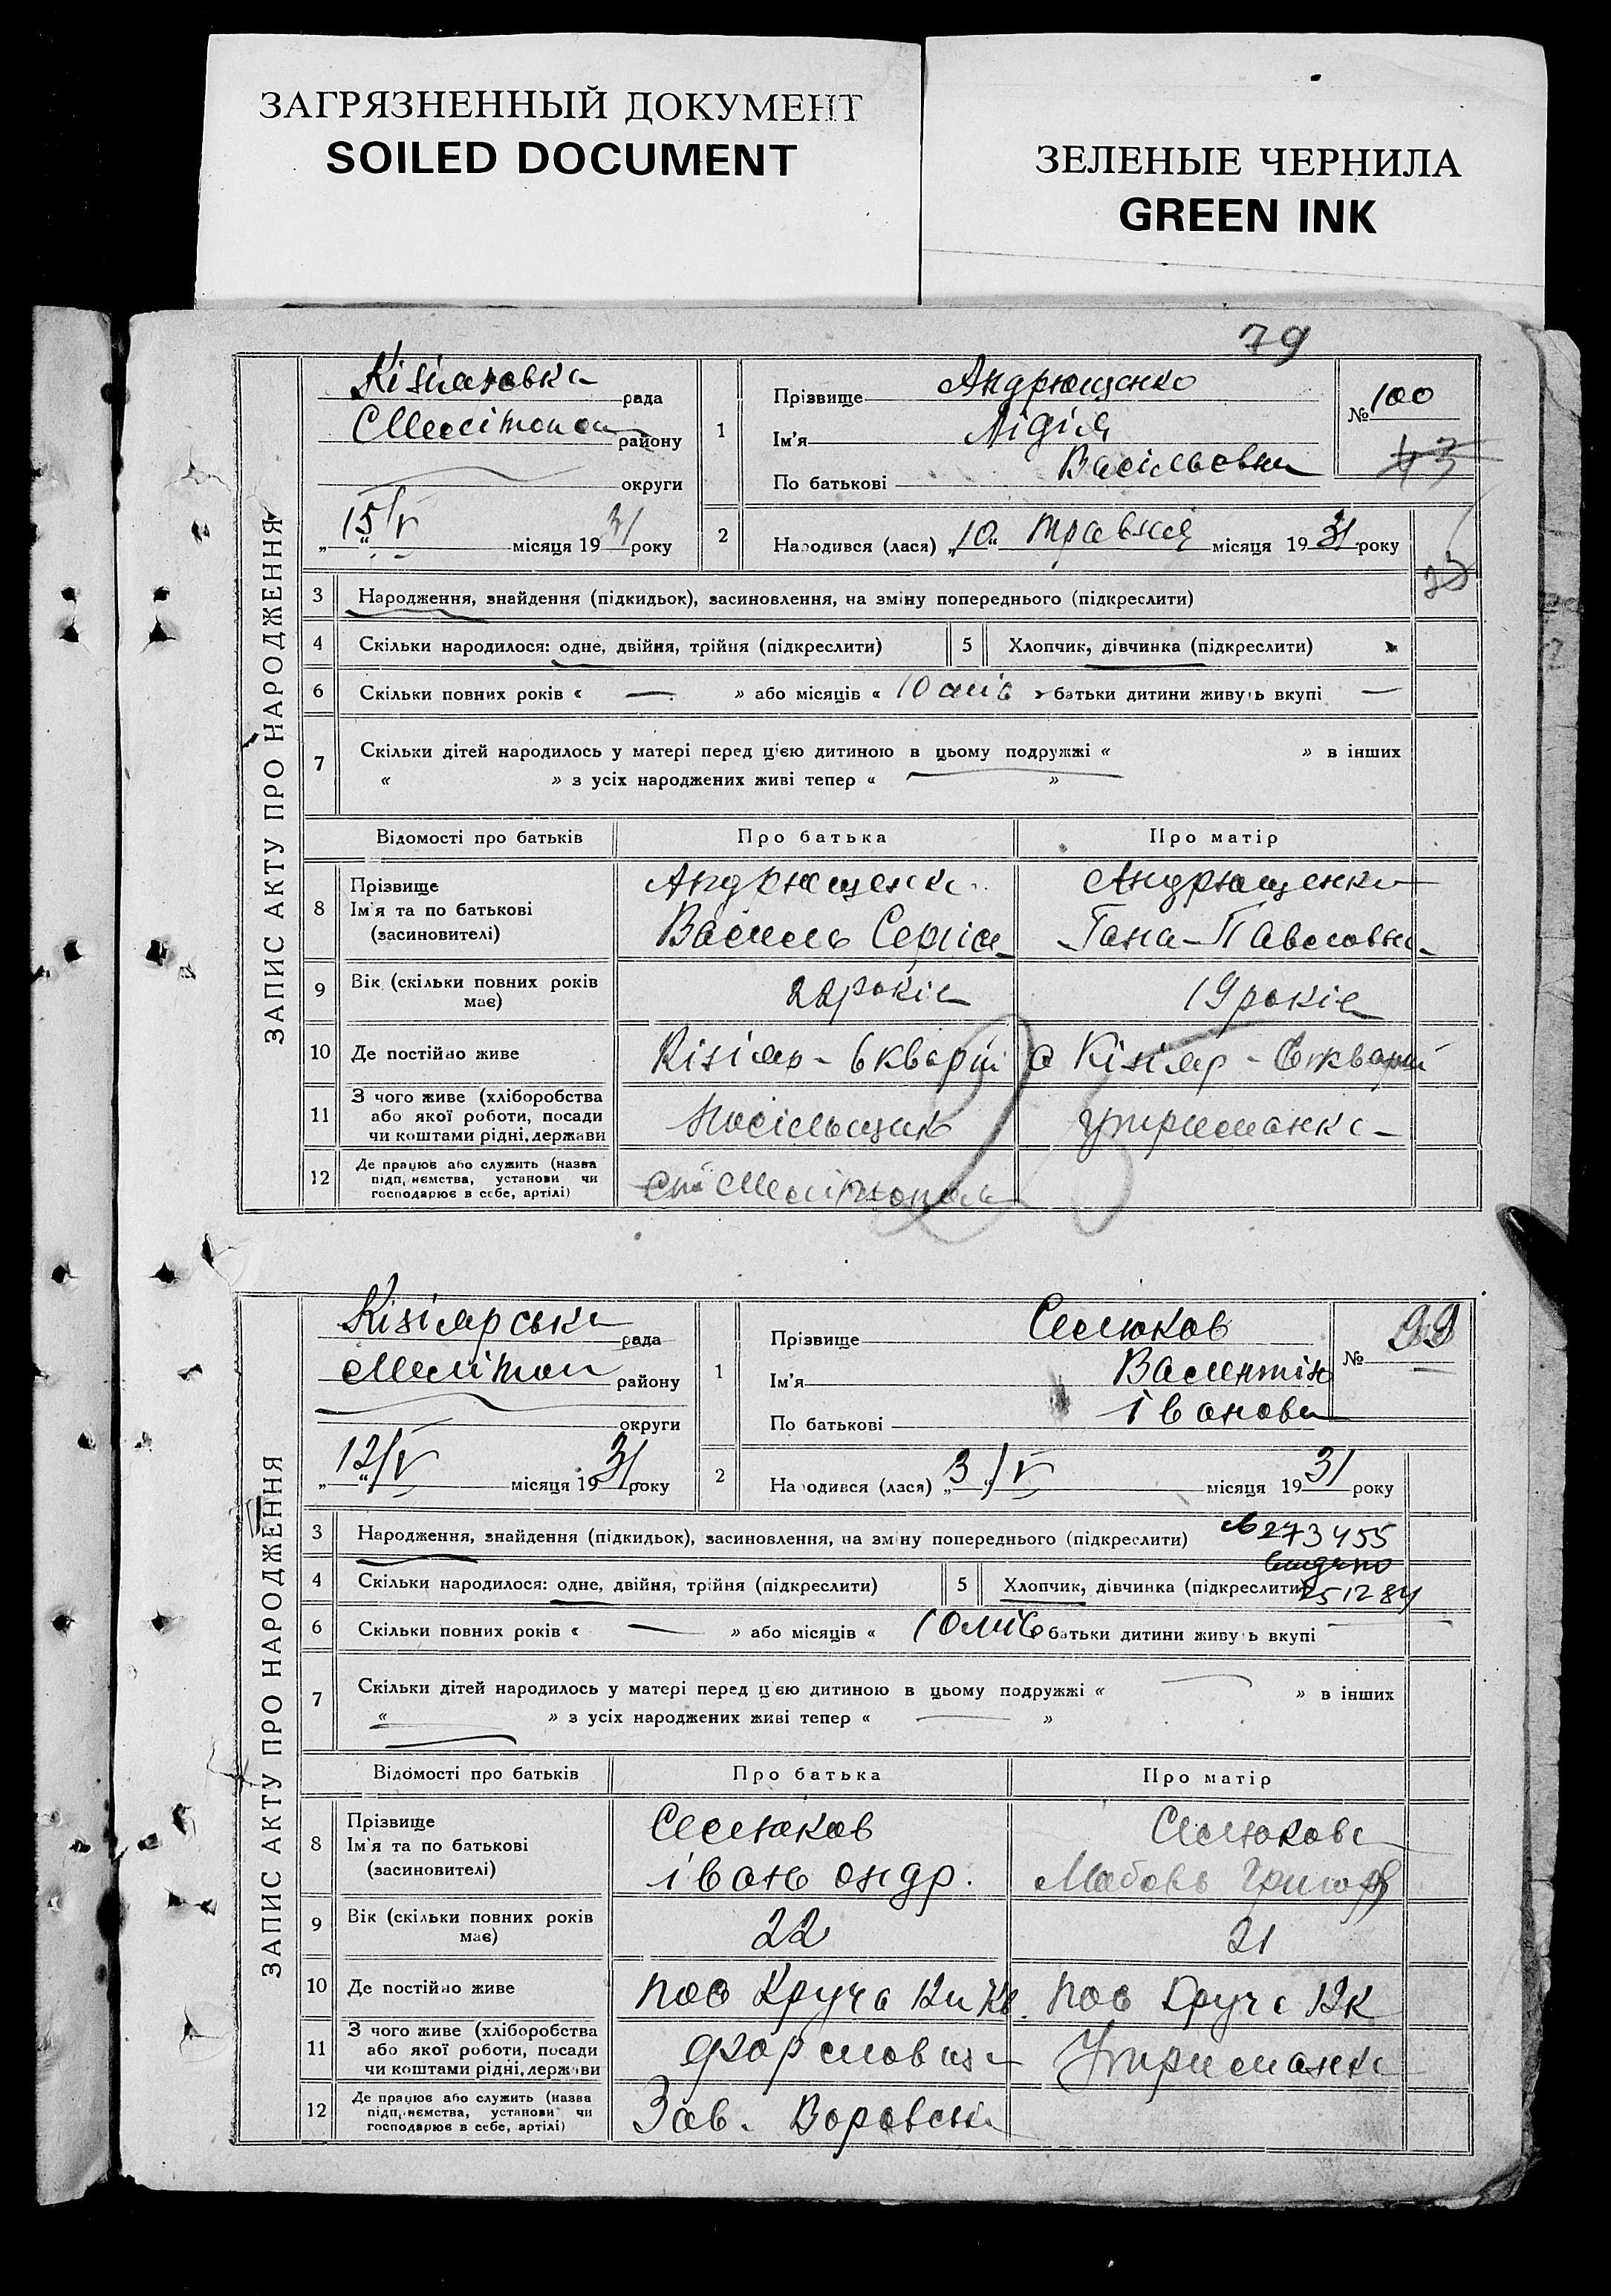 ЗАГРЯЗНЕННЫЙ ДОКУМЕНТ
SOILED DOCUMENT
ЗЕЛЕНЫЕ ЧЕРНИЛА
GREEN INK
79
ЗАПИС АКТУ ПРО НАРОДЖЕННЯ
рада
Мелітопол району
округи
„15/V“ місяця 1931 року
1
Прізвище Андрющенко
Ім'я Лідія
По батькові Васільєвна
№ 100
43
2
Народився (лася) „10“ травня місяця 1931 року
3 Народження, знайдення (підкидьок), засиновлення, на зміну попереднього (підкреслити)
4 Скільки народилося: одне, двійня, трійня (підкреслити) 5 Хлопчик, дівчинка (підкреслити)
6 Скільки повних років « — » або місяців « 10 міс » батьки дитини живуть вкупі —
7 Скільки дітей народилось у матері перед цією дитиною в цьому подружжі « » в інших
« » з усіх народжених живі тепер « »
Відомості про батьків Про батька Про матір
8 Прізвище
Ім'я та по батькові
(засиновителі)
Андрющенко
Василь Сергієв
Андрющенко
Гана Павловна
9 Вік (скільки повних років має) 22 років 19 років
10 Де постійно живе Кізіяр - 6 кварт Кізіяр - 6 кварт
11 З чого живе (хліборобства
або якої роботи, посади
чи коштами рідні, держави
Носільщик
утриманка
12 Де працює або служить (назва
підприємства, установи чи
господарює в себе, артілі)
ст Мелітополь
25
ЗАПИС АКТУ ПРО НАРОДЖЕННЯ
Кізіярська рада
Мелітоп району
округи
„12/V“ місяця 1931 року
1
Прізвище Селюков
Ім'я Валентін
По батькові Іванови
№ 99
2
Народився (лася) „3“/V місяця 1931 року
3 Народження, знайдення (підкидьок), засиновлення, на зміну попереднього (підкреслити)
№273455
251284
4 Скільки народилося: одне, двійня, трійня (підкреслити) 5 Хлопчик, дівчинка (підкреслити)
6 Скільки повних років « — » або місяців « 10 міс батьки дитини живуть вкупі —
7 Скільки дітей народилось у матері перед цією дитиною в цьому подружжі « — » в інших
« — » з усіх народжених живі тепер « — »
Відомості про батьків Про батька Про матір
8 Прізвище
Ім'я та по батькові
(засиновителі)
Селюков
івань андр.
Селюкова
Любовь Григор
9 Вік (скільки повних років має) 22 21
10 Де постійно живе пос Круча 12й Кв. пос Круча 12 к
11 З чого живе (хліборобства
або якої роботи, посади
чи коштами рідні, держави
формовщ
Утриманка
12 Де працює або служить (назва
підприємства, установи чи
господарює в себе, артілі)
Зав. Воровськ